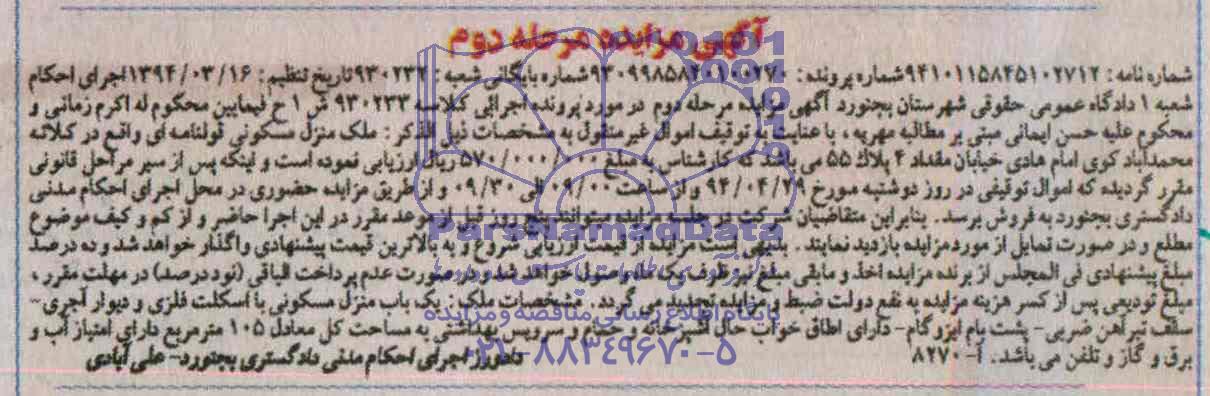 آگهی مزایده مرحله دوم
شماره نامه: ۹۴۱۰۱۱۵۸۴۵۱۰۲۷۱۲ شماره پرونده: ۹۳۰۹۹۸۵۸۴۲۰۱۰۰۲۷۰ شماره بایگانی شعبه: ۹۳۰۲۳۲ تاریخ تنظیم: ۱۳۹۴/۰۳/۱۶ اجرای احکام
شعبه ۱ دادگاه عمومی حقوقی شهرستان بجنورد آگهی مزایده مرحله دوم در مورد پرونده اجرائی کلاسه ۹۳۰۲۳۳ ش ۱ ح فیمابین محکوم له اکرم زمانی و
محکوم علیه حسن ایمانی مبنی بر مطالبه مهریه، با عنایت به توقیف اموال غیر منقول به مشخصات ذیل الذکر: ملک منزل مسکونی قولنامه ای واقع در کلاته
محمدآباد کوی امام هادی خیابان مقداد ۴ پلاک ۵۵ می باشد که کارشناس به مبلغ ۵۷۰/۰۰۰/۰۰۰ ریال ارزیابی نموده است و اینکه پس از سیر مراحل قانونی
مقرر گردیده که اموال توقیفی در روز دوشنبه مورخ ۹۴/۰۴/۲۹ و از ساعت ۰۹/۰۰ الی ۰۹/۳۰ و از طریق مزایده حضوری در محل اجرای احکام مدنی
دادگستری بجنورد به فروش برسد. بنابراین متقاضیان شرکت در جلسه مزایده میتوانند پنج روز قبل از موعد مقرر در این اجرا حاضر و از کم و کیف موضوع
مطلع و در صورت تمایل از مورد مزایده بازدید نمایند. بدیهی است مزایده از قیمت ارزیابی شروع و به بالاترین قیمت پیشنهادی واگذار خواهد شد و ده درصد
مبلغ پیشنهادی فی المجلس از برنده مزایده اخذ و مابقی مبلغ نیز ظرف یک ماه وصول خواهد شد و در صورت عدم پرداخت الباقی (نود درصد) در مهلت مقرر،
مبلغ تودیعی پس از کسر هزینه مزایده به نفع دولت ضبط و مزایده تجدید می گردد. مشخصات ملک: یک باب منزل مسکونی با اسکلت فلزی و دیوار آجری-
سقف تیرآهن ضربی- پشت بام ایزوگام- دارای اطاق خواب حال آشپزخانه و حمام و سرویس بهداشتی به مساحت کل معادل ۱۰۵ مترمربع دارای امتیاز آب و
برق و گاز و تلفن می باشد. آ-۸۲۷۰
دادورز اجرای احکام مدنی دادگستری بجنورد- علی آبادی
ParsNamadData
پایگاه اطلاع رسانی مناقصه و مزایده
۰۲۱-۸۸۳۴۹۶۷۰-۵